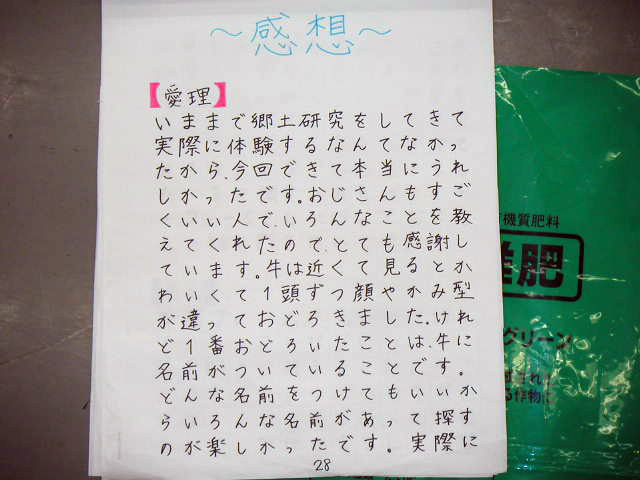 ～感想～
【愛理】
いままで郷土研究をしてきて
実際に体験するなんてなかっ
たから、今回できて本当にうれ
しかったです。おじさんもすご
くいい人で、いろんなことを教
えてくれたので、とても感謝し
ています。牛は近くて見るとか
わいくて1頭ずつ顔やかみ型
が違っておどろきました。けれ
ど1番おどろいたことは、牛に
名前がついていることです。
どんな名前をつけてもいいか
らいろんな名前があって探す
のが楽しかったです。実際に
28
機質肥料
堆肥
グリーン
る作物に